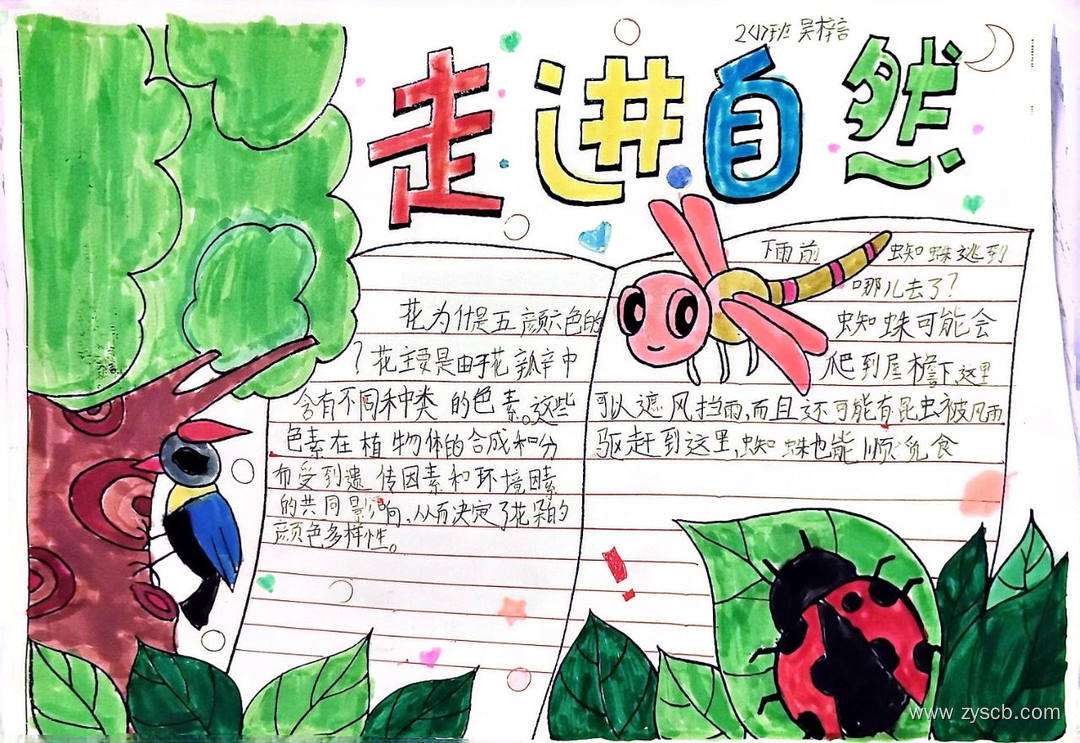 2(17)班 吴梓言
走进自然
花为什是五颜六色的
？花主要是由于花瓣中
含有不同种类的色素。这些
色素在植物体的合成和分
布受到遗传因素和环境因素
的共同影响，从而决定了花朵的
颜色多样性。
下雨前 蜘蛛逃到
哪儿去了？
蜘蛛可能会
爬到屋檐下，这里
可以遮风挡雨，而且还可能有昆虫被风雨
驱赶到这里，蜘蛛也能顺觅食
www.zyscb.com